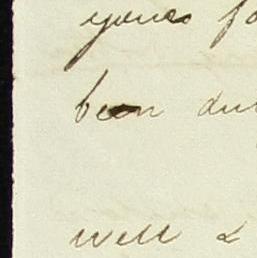 yours fo
been du
well &